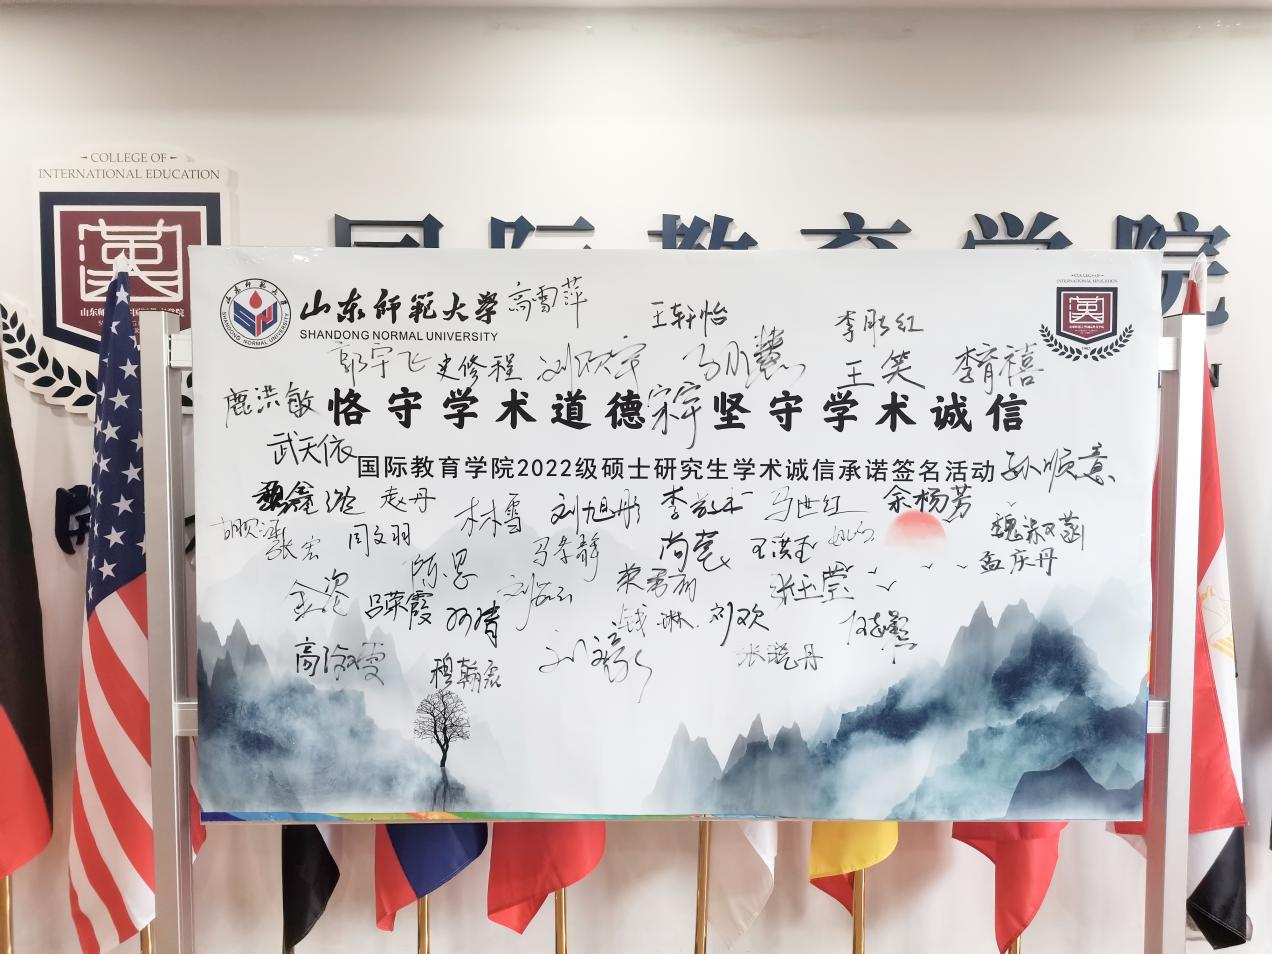 COLLEGE OF
INTERNATIONAL EDUCATION
国际教育学院
山东师范大学
SHANDONG NORMAL UNIVERSITY
高雪萍
王轩怡
李彤红
COLLEGE OF
INTERNATIONAL EDUCATION
郭宇飞 史修程 刘欣宇 王笑 李育禧
鹿洪敏
恪守学术道德 宋宇 坚守学术诚信
武天依
国际教育学院2022级硕士研究生学术诚信承诺签名活动
孙顺意
赵丹 林雪 刘旭彤 马世红 余杨芳
张宏 周文羽 马孝静 尚莹 王洪玉 魏淑菡
陈思 孟庆丹
吕荣霞 张玉莹
钱琳 刘欢
穆翰宸 张晓丹